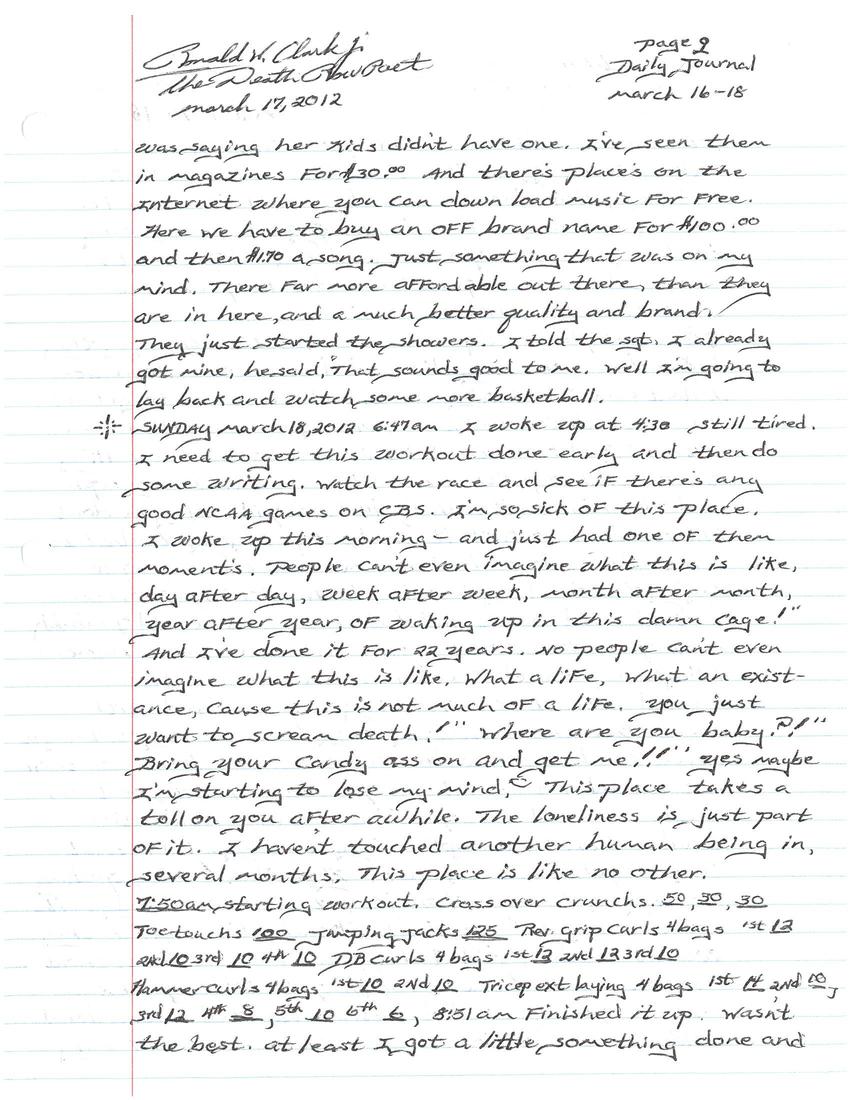 Ronald W. Clark Jr.
The Death Row Poet
march 17, 2012
page 9
Daily Journal
march 16-18
was saying her kids didn't have one. I've seen them
in magazines For $30.00 And there's place's on the
Internet where you can down load music For Free.
Here we have to buy an OFF brand name For $100.00
and then $1.70 a song. Just something that was on my
mind. There Far more affordable out there, than they
are in here, and a much better quality and brand.
They just started the showers. I told the sgt. I already
got mine, he said, "That sounds good to me. Well I'm going to
lay back and watch some more basketball.
SUNDAY march 18, 2012 6:47am I woke up at 4:30 still tired.
I need to get this workout done early and then do
some writing. Watch the race and see iF there's any
good NCAA games on CBS. I'm so sick OF this place.
I woke up this morning - and just had one OF them
moment's. People can't even imagine what this is like,
day aFter day, week aFter week, month aFter month,
year aFter year, OF waking up in this damn cage!"
And I've done it For 22 years. No people can't even
imagine what this is like. What a liFe, what an exist-
ance, Cause this is not much OF a liFe. You just
want to scream death!" Where are you baby?!"
Bring your Candy ass on and get me!!" yes maybe
I'm starting to lose my mind. This place takes a
toll on you aFter awhile. The loneliness is just part
OF it. I haven't touched another human being in,
several months. This place is like no other.
7:50am starting workout. Cross over crunchs. 50, 30, 30
Toe touchs 100 Jumping jacks 125 Rev. grip Curls 4 bags 1st 12
2nd 10 3rd 10 4th 10 DB Curls 4 bags 1st 12 2nd 12 3rd 10
Hammer curls 4 bags 1st 10 2nd 10 Tricep ext laying 4 bags 1st 14 2nd 10,
3rd 12 4th 8, 5th 10 6th 6, 8:51am Finished it up. Wasn't
the best. at least I got a little something done and